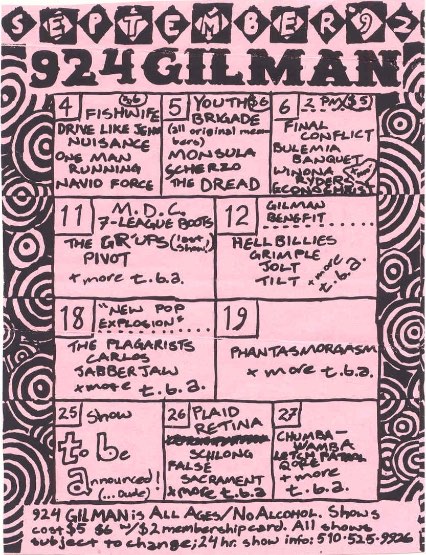 SEPTEMBER '92
924 GILMAN
4 $6
FISHWIFE
DRIVE LIKE JEHU
NUISANCE
ONE MAN
RUNNING
NAVIO FORCE
5 YOUTH $6
BRIGADE
(all original mem
bers)
MONSULA
SCHERZO
THE DREAD
6 2 PM/$5
FINAL
CONFLICT
BULEMIA
BANQUET
WINONA
RYDER
ECONOCHRIST
11 M.D.C.
7-LEAGUE BOOTS
THE GR'UPS (last
show!)
PIVOT
+ more t.b.a.
12 GILMAN
BENEFIT
HELLBILLIES
GRIMPLE
JOLT
TILT + more
t.b.a.
18 "NEW POP
EXPLOSION"
THE PLAGARISTS
CARLOS
JABBERJAW
+ more t.b.a.
19
PHANTASMORGASM
+ more t.b.a.
25 Show
to be
announced!
(...Dude)
26 PLAID
RETINA
SCHLONG
FALSE
SACRAMENT
+ more t.b.a.
27
CHUMBA-
WAMBA
LETCH PATROL
QORE
+ more
t.b.a.
924 GILMAN is ALL AGES/NO ALCOHOL. Shows
cost $5 $6 w/$2 membership card. All shows
subject to change; 24 hr. show info: 510-525-9926